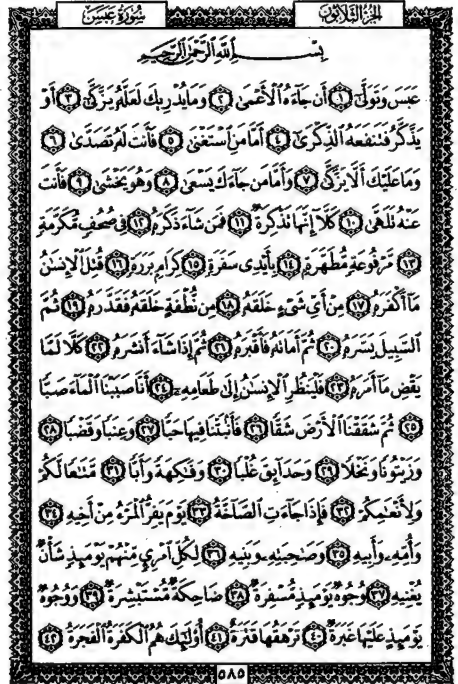 الجزء الثلاثون
سُورَةُ عَبَسَ
بِسْمِ اللَّهِ الرَّحْمَٰنِ الرَّحِيمِ
عَبَسَ وَتَوَلَّىٰٓ ١ أَن جَآءَهُ ٱلْأَعْمَىٰ ٢ وَمَا يُدْرِيكَ لَعَلَّهُۥ يَزَّكَّىٰٓ ٣ أَوْ
يَذَّكَّرُ فَتَنفَعَهُ ٱلذِّكْرَىٰٓ ٤ أَمَّا مَنِ ٱسْتَغْنَىٰ ٥ فَأَنتَ لَهُۥ تَصَدَّىٰ ٦
وَمَا عَلَيْكَ أَلَّا يَزَّكَّىٰ ٧ وَأَمَّا مَن جَآءَكَ يَسْعَىٰ ٨ وَهُوَ يَخْشَىٰ ٩ فَأَنتَ
عَنْهُ تَلَهَّىٰ ١٠ كَلَّآ إِنَّهَا تَذْكِرَةٌ ١١ فَمَن شَآءَ ذَكَرَهُۥ ١٢ فِى صُحُفٍ مُّكَرَّمَةٍ
١٣ مَّرْفُوعَةٍ مُّطَهَّرَةٍۭ ١٤ بِأَيْدِى سَفَرَةٍ ١٥ كِرَامٍۭ بَرَرَةٍ ١٦ قُتِلَ ٱلْإِنسَٰنُ
مَآ أَكْفَرَهُۥ ١٧ مِنْ أَىِّ شَىْءٍ خَلَقَهُۥ ١٨ مِن نُّطْفَةٍ خَلَقَهُۥ فَقَدَّرَهُۥ ١٩ ثُمَّ
ٱلسَّبِيلَ يَسَّرَهُۥ ٢٠ ثُمَّ أَمَاتَهُۥ فَأَقْبَرَهُۥ ٢١ ثُمَّ إِذَا شَآءَ أَنشَرَهُۥ ٢٢ كَلَّا لَمَّا
يَقْضِ مَآ أَمَرَهُۥ ٢٣ فَلْيَنظُرِ ٱلْإِنسَٰنُ إِلَىٰ طَعَامِهِۦٓ ٢٤ أَنَّا صَبَبْنَا ٱلْمَآءَ صَبًّا
٢٥ ثُمَّ شَقَقْنَا ٱلْأَرْضَ شَقًّا ٢٦ فَأَنۢبَتْنَا فِيهَا حَبًّا ٢٧ وَعِنَبًا وَقَضْبًا ٢٨
وَزَيْتُونًا وَنَخْلًا ٢٩ وَحَدَآئِقَ غُلْبًا ٣٠ وَفَٰكِهَةً وَأَبًّا ٣١ مَّتَٰعًا لَّكُمْ
وَلِأَنْعَٰمِكُمْ ٣٢ فَإِذَا جَآءَتِ ٱلصَّآخَّةُ ٣٣ يَوْمَ يَفِرُّ ٱلْمَرْءُ مِنْ أَخِيهِ ٣٤
وَأُمِّهِۦ وَأَبِيهِ ٣٥ وَصَٰحِبَتِهِۦ وَبَنِيهِ ٣٦ لِكُلِّ ٱمْرِئٍ مِّنْهُمْ يَوْمَئِذٍ شَأْنٌ
يُغْنِيهِ ٣٧ وُجُوهٌ يَوْمَئِذٍ مُّسْفِرَةٌ ٣٨ ضَاحِكَةٌ مُّسْتَبْشِرَةٌ ٣٩ وَوُجُوهٌ
يَوْمَئِذٍ عَلَيْهَا غَبَرَةٌ ٤٠ تَرْهَقُهَا قَتَرَةٌ ٤١ أُو۟لَٰٓئِكَ هُمُ ٱلْكَفَرَةُ ٱلْفَجَرَةُ ٤٢
٥٨٥